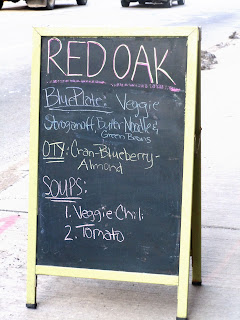 RED OAK
Blue Plate: Veggie
Stroganoff, Butter Noodles &
Green Beans
OTY: Cran-Blueberry-
Almond
SOUPS:
1. Veggie Chili
2. Tomato